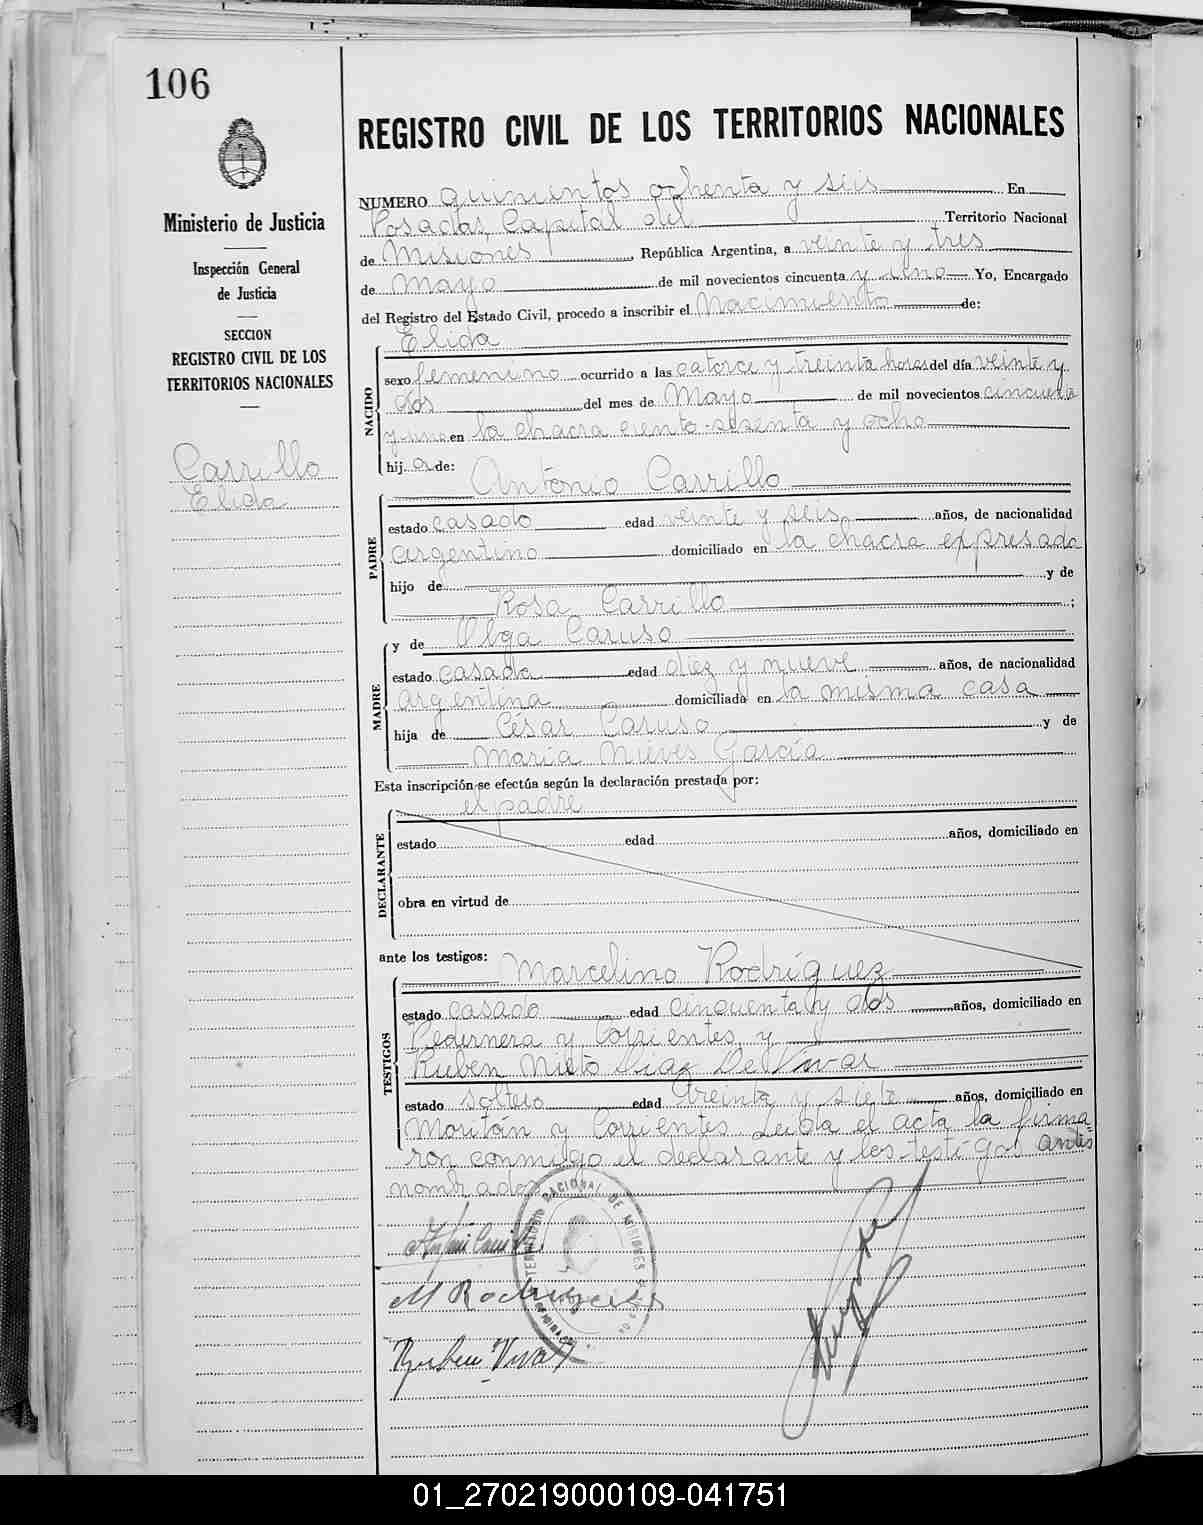 106
REGISTRO CIVIL DE LOS TERRITORIOS NACIONALES
Ministerio de Justicia
Inspección General
de Justicia
SECCION
REGISTRO CIVIL DE LOS
TERRITORIOS NACIONALES
Carrillo
Elida
NUMERO quinientos ochenta y seis En
Posadas, Capital del Territorio Nacional
de Misiones, República Argentina, a veinte y tres
de Mayo de mil novecientos cincuenta y uno Yo, Encargado
del Registro del Estado Civil, procedo a inscribir el Nacimiento de:
Elida
NACIDO
sexo femenino ocurrido a las catorce y treinta horas del día veinte y
dos del mes de Mayo de mil novecientos cincuenta
y uno en la chacra ciento sesenta y ocho
hij a de: Antonio Carrillo
PADRE
estado casado edad veinte y seis años, de nacionalidad
argentino domiciliado en la chacra expresada
hijo de y de
Rosa Carrillo;
y de Olga Caruso
MADRE
estado casada edad diez y nueve años, de nacionalidad
argentina domiciliada en la misma casa
hija de César Caruso y de
María Nieves García
Esta inscripción se efectúa según la declaración prestada por:
el padre
DECLARANTE
estado edad años, domiciliado en
obra en virtud de
ante los testigos: Marcelino Rodríguez
TESTIGOS
estado casado edad cincuenta y dos años, domiciliado en
Pedernera y Corrientes, y
Ruben Nieto Diaz De Vivar
estado soltero edad treinta y siete años, domiciliado en
Moritán y Corrientes. Leida el acta la firma
ron conmigo el declarante y los testigos antes
nombrados
TERRITORIO NACIONAL DE MISIONES
M Rodriguez
Ruben Vivar
01_270219000109-041751